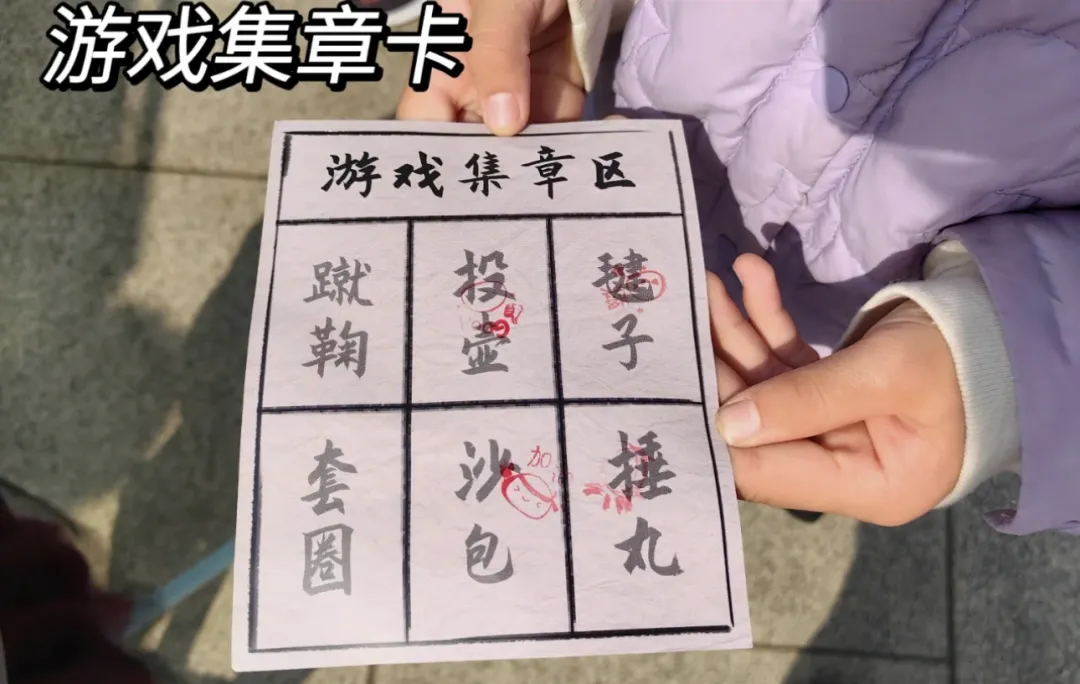 游戏集章卡
游戏集章区
蹴鞠
投壶
毽子
套圈
沙包
捶丸
加